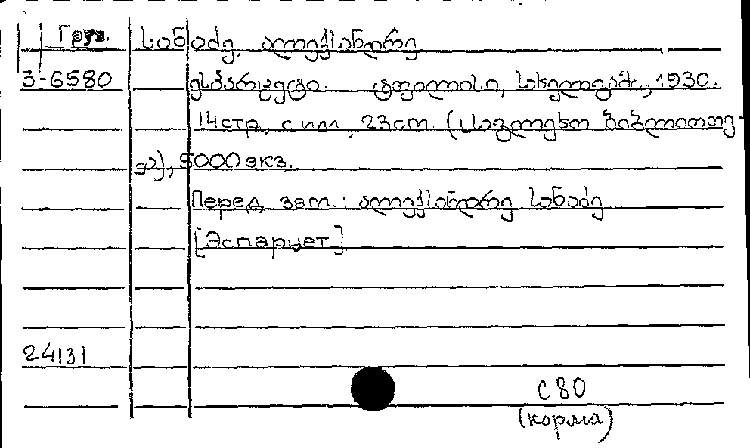 Груз.
სანაძე, ალექსანდრე
3-6580 ესპარცეტი. ტფილისი, სახელგამ., 1930.
14 стр. с илл., 23 cm. (საგლეხო ბიბლიოთე-
კა), 5000 экз.
Перед загл.: ალექსანდრე სანაძე
[Эспарцет]
24131
с 80
(корма)